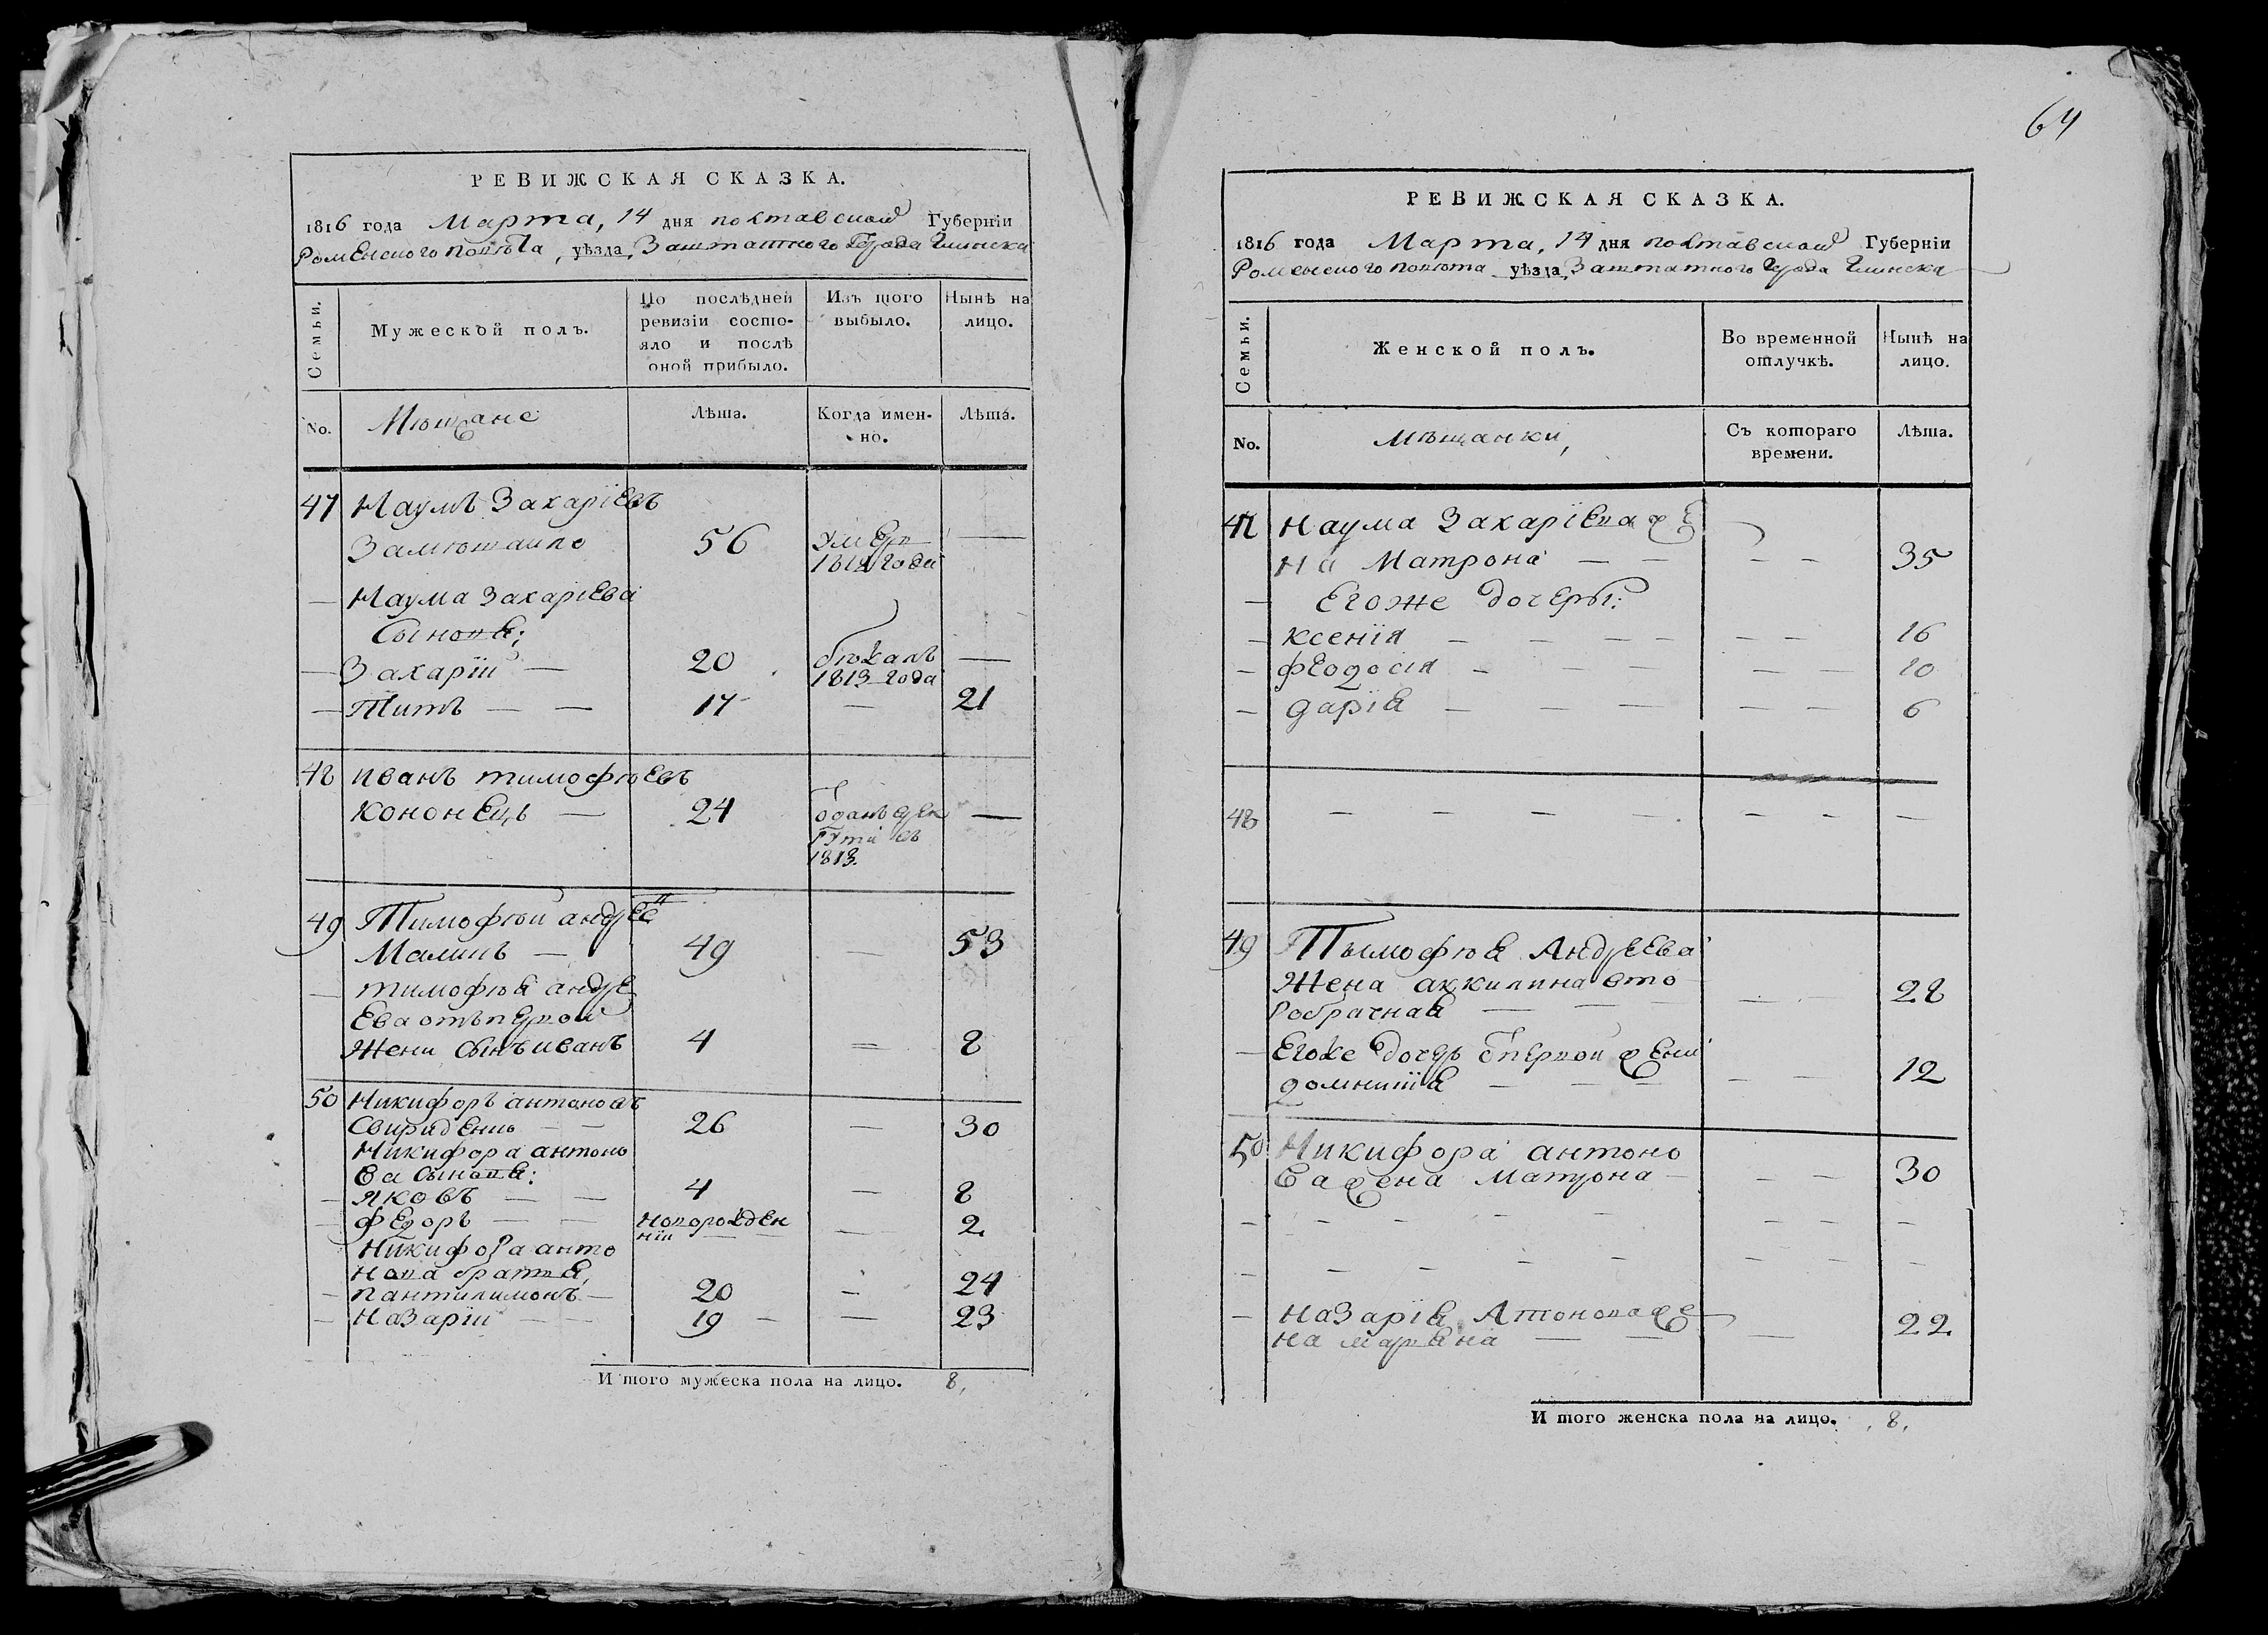 РЕВИЖСКАЯ СКАЗКА.
1816 года Марта, 14 дня полтавской Губерніи
Роменского повѣта, уѣзда, Заштатного Города Глинска
Семьи.
Мужеской полъ.
По послѣдней ревизіи состояло и послѣ оной прибыло.
Изъ того выбыло.
Нынѣ на лицо.
No.
Мѣщане
Лѣта.
Когда именно.
Лѣта.
47 Наумъ Захарієвъ
56 умеръ —
1812 года
— Наума Захаріева
Сыновя:
— Захарій — 20 бѣжалъ —
1813 года
— Титъ — — 17 — 21
48 иванъ тимофѣевъ
кононецъ — 24 отданъ врек —
рути въ
1813.
49 Тимофѣй андрее
Малишъ — 49 — 53
— тимофѣя андре
Ева отъ первой
жени сынъ иванъ 4 — 8
50 Никифоръ антоновъ
Свириденко — — 26 — 30
Никифора антоно
ва сыновя:
— яковъ — — 4 — 8
— федоръ — — новорожден — 2
ній
Никифора анто
нова братья,
— пантилимонъ — 20 — 24
— Назарій — — 19 — — 23
И того мужеска пола на лицо. 8,
64
РЕВИЖСКАЯ СКАЗКА.
1816 года Марта, 14 дня полтавской Губерніи
Роменского повѣта уѣзда, Заштатного Города Глинска
Семьи.
Женской полъ.
Во временной отлучкѣ.
Нынѣ на лицо.
No.
мѣщанки,
Съ котораго времени.
Лѣта.
47 Наума Захарієва же
на Матрона — — — — 35
— Егоже дочеры:
— ксенія — — — — — — 16
— феодосія — — — — 10
— дарія — — — — — 6
48 — — — — — — —
49 Тымофѣя Андреева
Жена аккилина вто
робрачная — — — — 28
— Егоже дочерь отпервой жени
домникія — — — — — 12
50 Никифора антоно
ва жена Матрона — — — 30
— — — — — — — — —
— — — — — — — — —
— Назарія Атонова же
на маряна — — — 22
И того женска пола на лицо. 8,